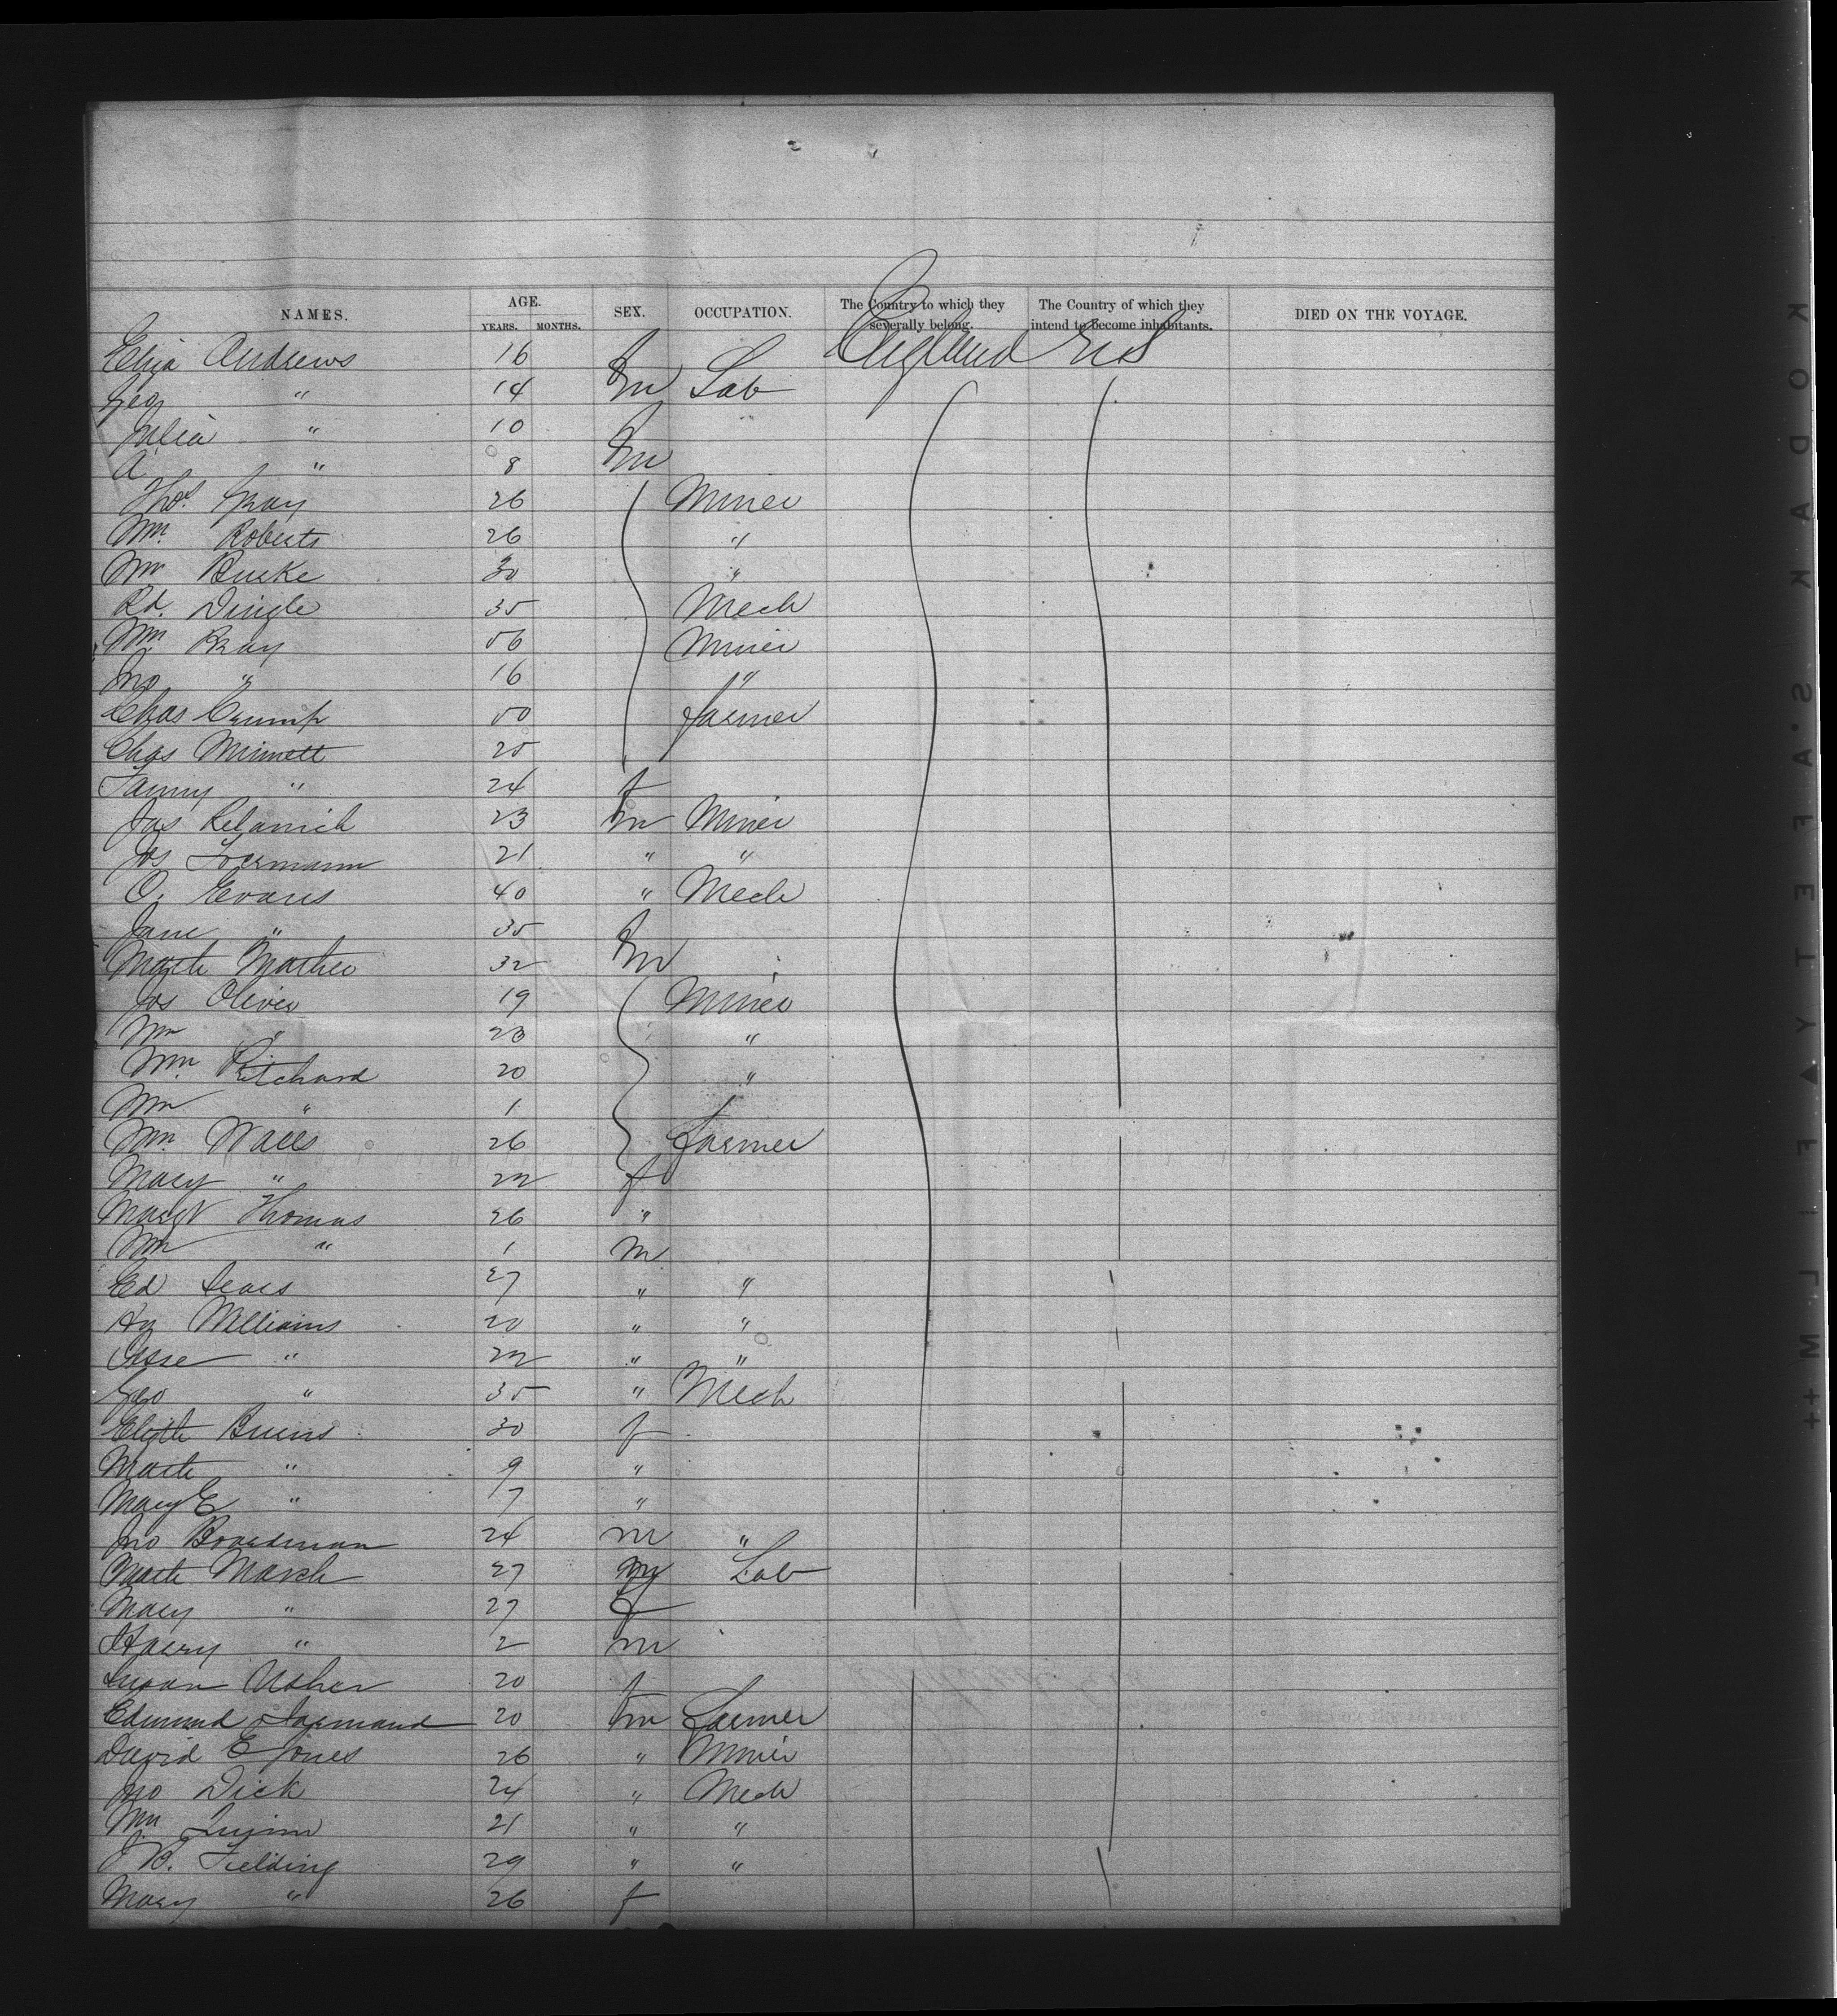 NAMES. AGE. YEARS. MONTHS. SEX. OCCUPATION. The Country to which they severally belong. The Country of which they intend to become inhabitants. DIED ON THE VOYAGE.
Eliza Andrews 16 f England U S
Geo " 14 m Lab
Julia " 10 f
A " 8 m
Thos. Gray 26 Miner
Wm. Roberts 26 "
Wm Burke 30 "
Rd. Dingle 35 Mech
Wm. Bray 56 Miner
Jno " 16 "
Chas Crump 50 Farmer
Chas Minnett 25
Fanny " 24 f
Jas 23 m Miner
Jos 21 " "
O. Evans 40 " Mech
Jane " 35 f
Martha 32 m
Jos Oliver 19 Miner
Wm " 23 "
Wm. Pritchard 20 "
Wm " 1
Wm. Walls 26 Farmer
Mary " 22 f
Margt Thomas 26 "
Wm " 1 m
Ed 27 " "
Hy Williams 20 " "
Jesse " 22 " "
Geo " 35 " Mech
Elizth 30 f
Marth " 9 "
Mary E " 7 "
Jno Boardman 24 m "
March 27 m Lab
Mary " 27 f
Harry " 2 m
Susan Usher 20 f
Edmund 20 m Farmer
David E Jones 26 " Miner
Jno Dick 24 " Mech
Wm Quinn 21 " "
J B. Fielding 29 " "
Mary " 26 f
KODAK·SAFETY▲FILM ++